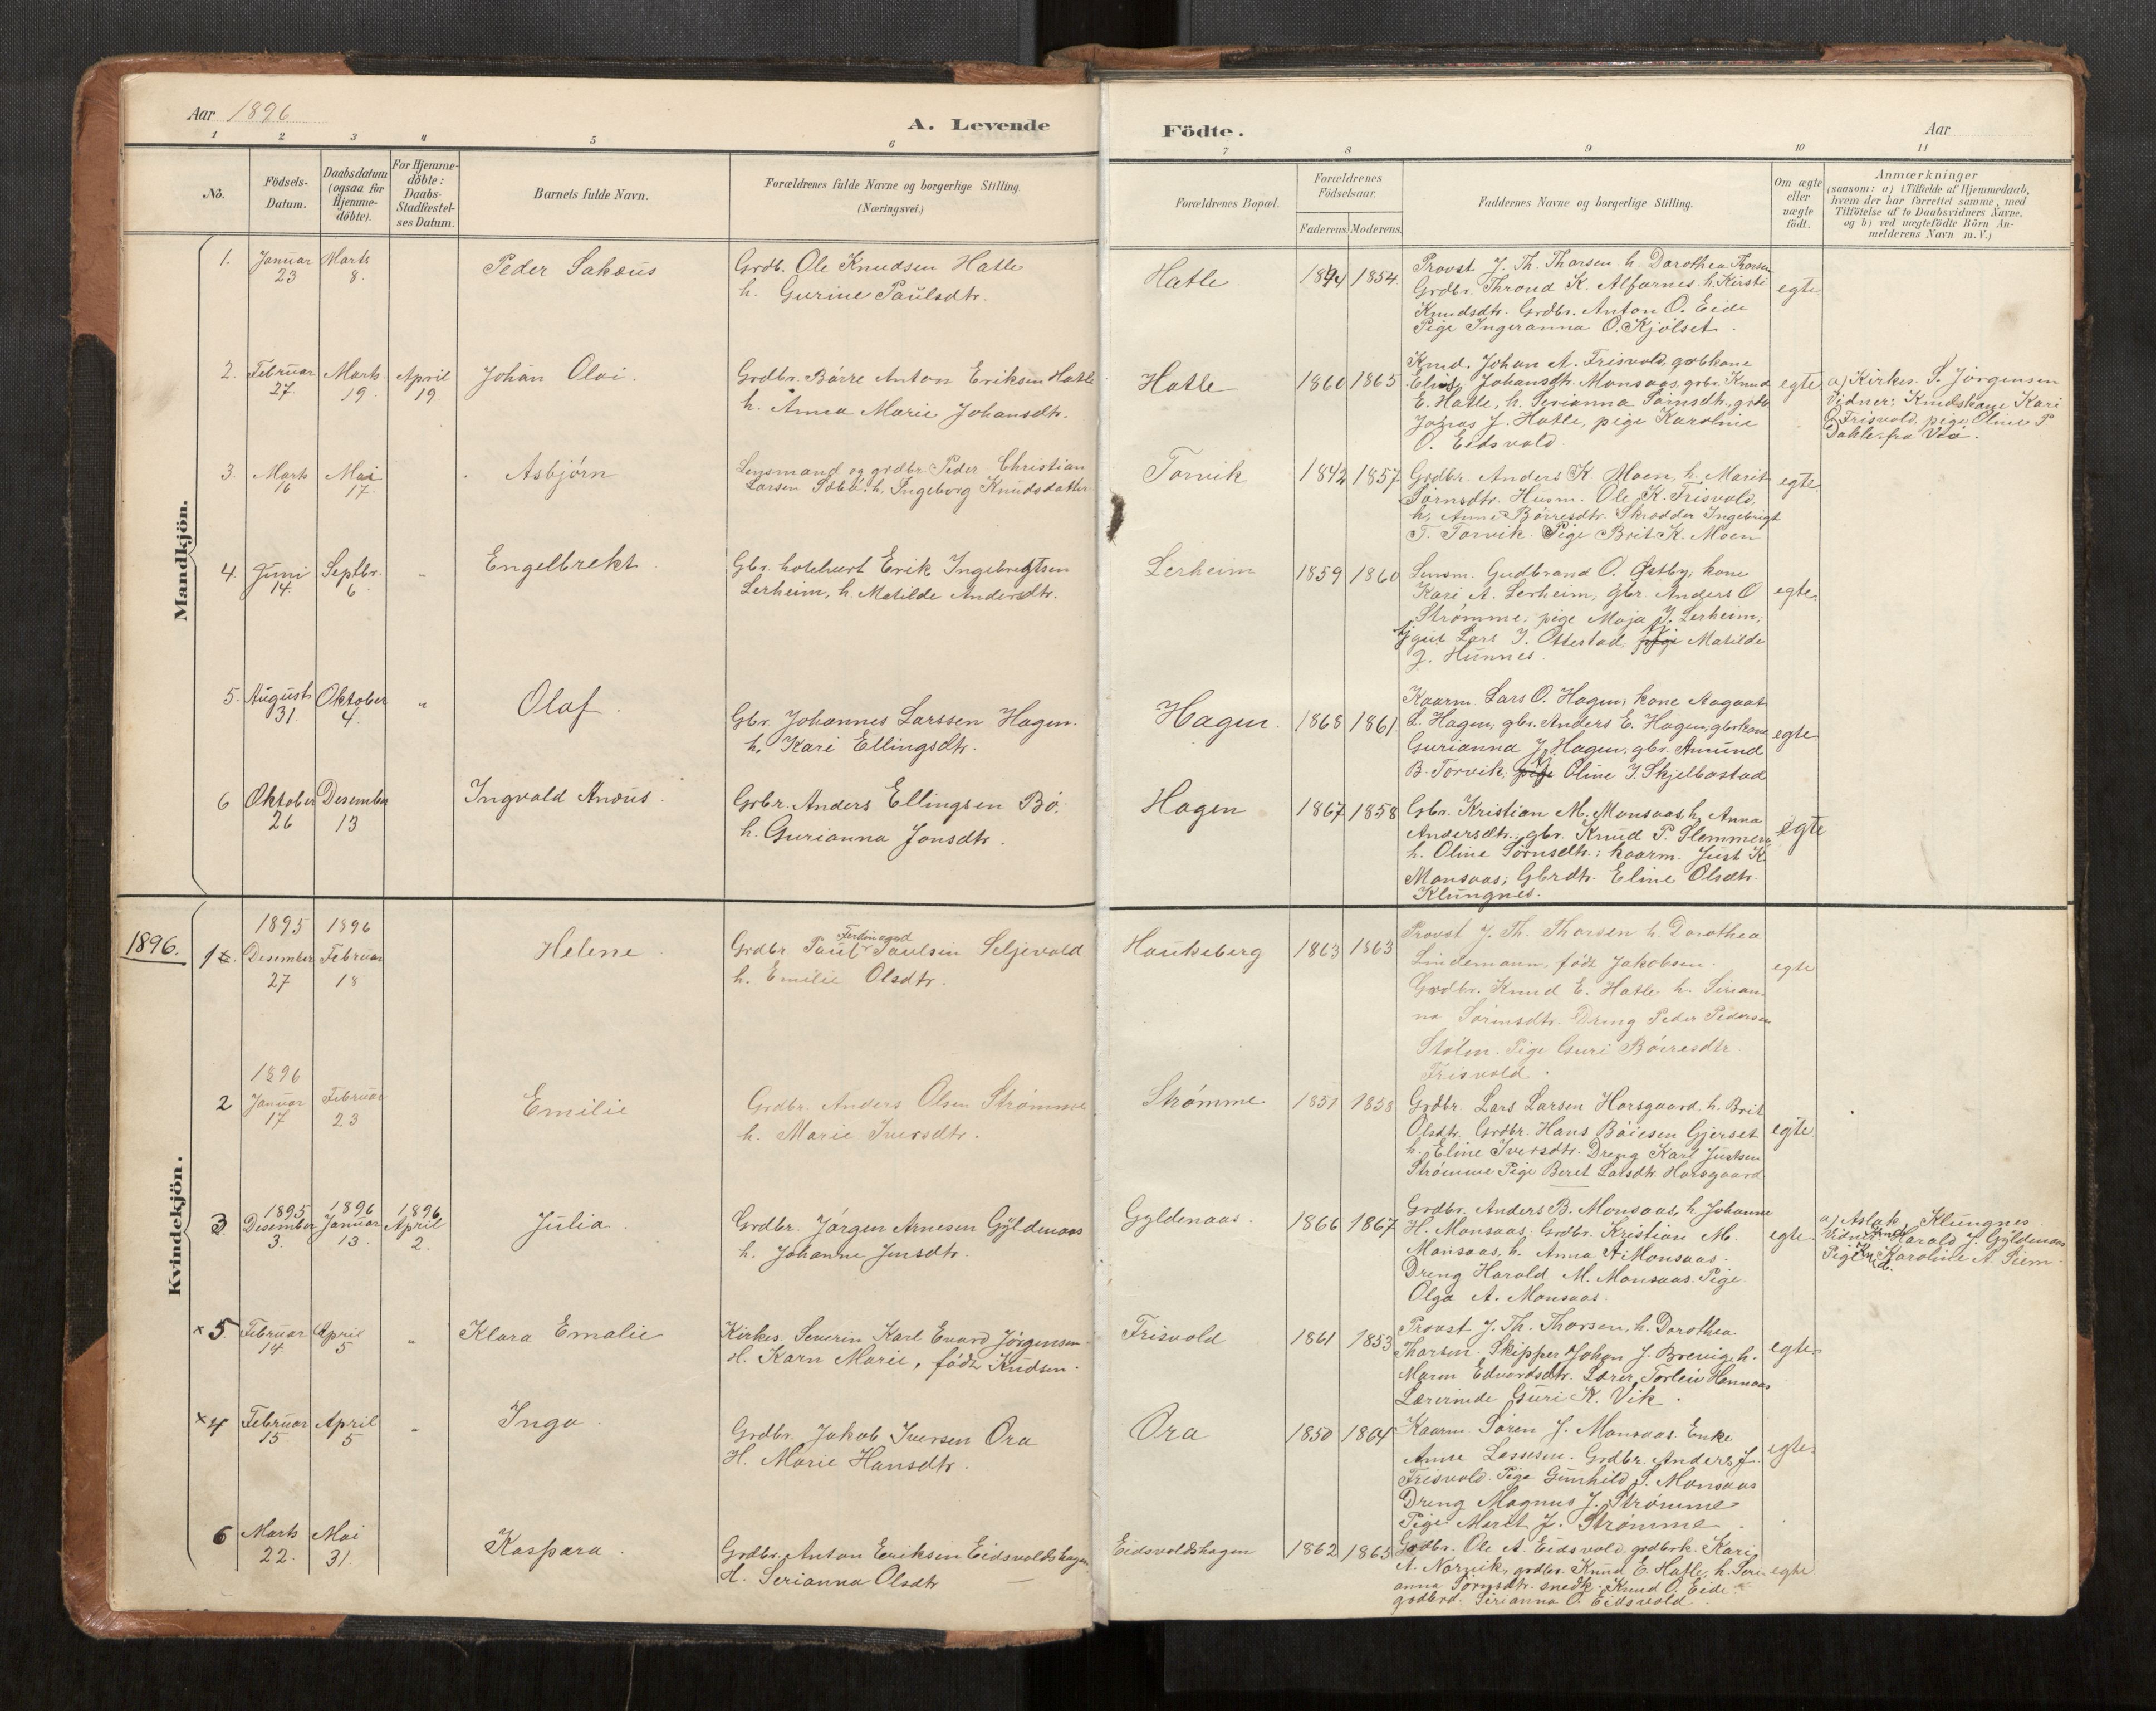 Aar 1896
A. Levende
Födte.
Aar
1 2 3 4 5 6 7 8 9 10 11
No.
Födsels-Datum.
Daabsdatum (ogsaa for Hjemme-döbte).
For Hjemme-döbte: Daabs-Stadfestel-ses Datum.
Barnets fulde Navn.
Forældrenes fulde Navne og borgerlige Stilling. (Næringsvei.)
Forældrenes Bopæl.
Forældrenes Födselsaar.
Faderens. Moderens.
Faddernes Navne og borgerlige Stilling.
Om ægte eller uægte födt.
Anmærkninger
(saasom: a) i Tilfælde af Hjemmedaab,
hvem der har forrettet samme, med
Tilföielse af to Daabsvidners Navne.
og b) ved uægtefödte Börn An-
melderens Navn m.V.)
Mandkjön.
1. Januar 23 Marts 8.
Peder Sakæus
Grdb. Ole Knudsen Hatle
h. Gurine Paulsdtr.
Hatle 1844 1854
Provst J. Th. Thorsen h. Dorothea Thorsen
Grdbr. Throud K. Alfarnes h. Kirsti
Knudsdtr. Grdbr. Anton O. Eide
Pige Ingeranna O. Kjölset.
egte
2. Februar 27. Marts 19. April 19.
Johan Olai.
Grdbr. Börre Anton Eriksen Hatle
h. Anna Marie Johansdtr.
Hatle 1860 1865
Knud. Johan A. Frisvold, grbkone
Elis Johansdtr. Monsaas, grbr. Knud
E. Hatle, h. Serianna Sörnsdtr., grdb
Jonas J. Hatle, pige Karoline
O. Eidsvold.
egte
a) Kirkes. S. Jörgensen
Vidner: Knudskone Kari
O. Frisvold, pige Oline P
Dahle fra Veö.
3. Marts 16 Mai 17.
Asbjörn
Lensmand og grdbr. Peder Christian
Larsen Söbö. h. Ingeborg Knudsdatter
Torvik 1842 1857
Grdbr. Anders K. Moen, h. Marit
Sörnsdtr. Husm. Ole K. Frisvold,
h. Anne Börresdtr. Skrædder Ingebrigt
T. Torvik. Pige Brit K. Moen
egte.
4. Juni 14. Septbr. 6 "
Engelbrekt.
Gbr. hotelvært Erik Ingebrigtsen
Lerheim, h. Matilde Andersdtr.
Lerheim 1859 1860
Lensm. Gudbrand O. Østby, kone
Kari A. Lerheim, Gbr. Anders O
Strømme, pige Maja J. Lerheim,
gut Lars J. Ottestad, pige Matilde
J. Hunnes.
egte.
5. August 31. Oktober 4. "
Olaf.
Gbr. Johannes Larssen Hagen.
h. Kari Ellingsdtr.
Hagen. 1868 1861.
Kaarm. Lars O. Hagen, kone Aagaat
L. Hagen, gbr. Anders E. Hagen, gbrkone
Gurianna J. Hagen, gbr. Amund
B. Torvik, pige Oline J. Skjelbostad
egte.
6 Oktober 26 Desember 13
Ingvald Anæus.
Grbr. Anders Ellingsen Bö.
h. Gurianna Jonsdtr.
Hagen 1867 1858
Gbr. Kristian M. Monsaas, h. Anna
Andersdtr.; gbr. Knud P. Slemmen
h. Oline Sörnsdtr.; kaarm. Just K
Monsaas; Gbrdtr. Eline Olsdtr.
Klungnes.
egte
1896.
Kvindekjön.
1. 1895 Desember 27 1896 Februar 18
Helene.
Grdbr. Paul Ferdinand Paulsen Seljevold
h. Emilie Olsdtr.
Haukeberg 1863 1863
Provst J. Th. Thorsen h. Dorothea
Lindemann, född Jakobsen.
Grdbr. Knud E. Hatle h. Serian
na Sörnsdtr. Dreng Peder Pedersen
Stölen. Pige Guri Börresdtr.
Frisvold.
egte
2 1896 Januar 17 Februar 23
Emilie
Grdbr. Anders Olsen Strømme
h. Marie Iversdtr.
Strømme 1851 1858
Grdbr. Lars Larsen Horsgaard. h. Brit
Olsdtr. Grdbr. Hans Böiesen Gjerset
h. Eline Iversdtr. Dreng Karl Justsen
Strömme Pige Beret Larsdtr. Horsgaard
egte.
3. 1895 Desember 3. 1896 Januar 13. 1896 April 2.
Julia.
Grdbr. Jørgen Arnesen Gyldenaas
h. Johanne Jensdtr.
Gyldenaas. 1866 1867
Grdbr. Anders B. Monsaas, h. Johanne
H. Monsaas. Grdbr. Kristian M.
Monsaas, h. Anna A. Monsaas.
Dreng Harald M. Monsaas. Pige
Olga A. Monsaas.
egte.
a) Aslak Klungnes
Vidner: Harald J. Gyldenaas
Pige Karoline A. Siem.
x 5. Februar 14 April 5 "
Klara Emalie
Kirkes. Severin Karl Evard Jörgensen.
H. Karn Marie, född Knudsen.
Frisvold 1861 1853
Provst J. Th. Thorsen, h. Dorothea
Thorsen. Skipper Johan J. Brevig, h.
Maren Edvardsdtr. Lærer Torleiv Hannaas
Lærerinde Guri K. Vik.
egte.
x 4 Februar 15. April 5 "
Inga.
Grdbr. Jakob Iversen Ora
H. Marie Hansdtr.
Ora 1850 1864
Kaarm. Sören J. Monsaas. Enke
Anne Lassesen. Grdbr. Anders J.
Frisvold. Pige Gunhild S. Monsaas
Dreng Magnus J. Strömme
Pige Marit J. Strömme.
egte.
6 Marts 22. Mai 31.
Kaspara.
Grdbr. Anton Eriksen Eidsvoldshagen
H. Serianna Olsdtr
Eidsvoldshagen 1862 1865
Grdbr. Ole A. Eidsvold, grdbrk. Kari
A. Norvik, grdbr. Knud E. Hatle, h. Seri
anna Sörnsdtr. snedk. Knud O. Eide
grdbrd. Serianna O. Eidsvold.
egte